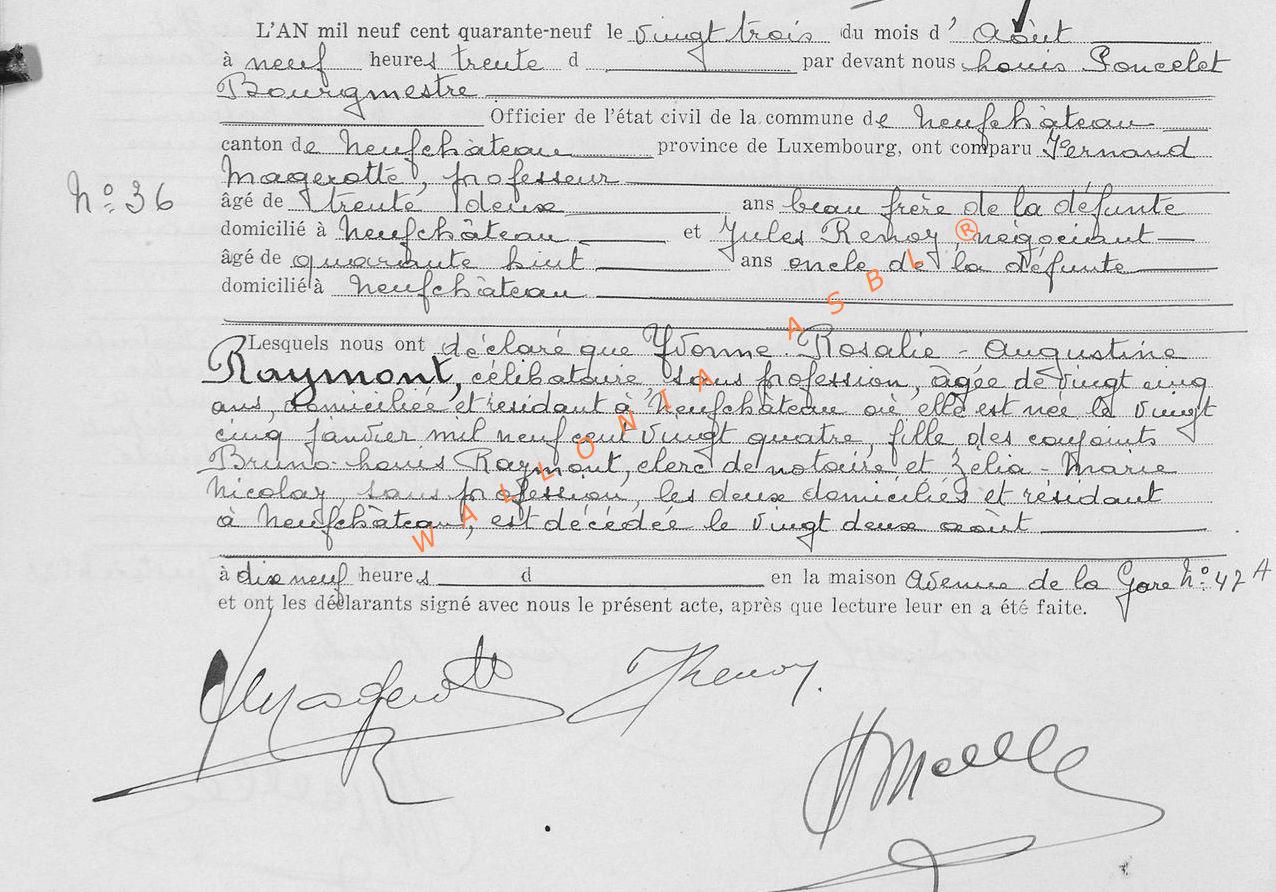 L'AN mil neuf cent quarante-neuf le vingt trois du mois d' Août
à neuf heures trente d par devant nous Louis Poncelet
Bourgmestre
Officier de l'état civil de la commune de Neufchâteau
canton de Neufchâteau province de Luxembourg, ont comparu Fernand
Magerotte, professeur
N° 36
âgé de trente deux ans beau frère de la défunte
domicilié à Neufchâteau et Jules Renoy, négociant
âgé de quarante huit ans oncle de la défunte
domicilié à Neufchâteau
Lesquels nous ont déclaré que Yvonne-Rosalie-Augustine
Raymont, célibataire, sans profession, âgée de vingt cinq
ans, domiciliée et résidant à Neufchâteau où elle est née le vingt
cinq janvier mil neuf cent vingt quatre, fille des conjoints
Bruno-Louis Raymont, clerc de notaire et Zélia-Marie
Nicolay, sans profession, les deux domiciliés et résidant
à Neufchâteau, est décédée le vingt deux août
à dix neuf heures d en la maison Avenue de la Gare N° 42 A
et ont les déclarants signé avec nous le présent acte, après que lecture leur en a été faite.
WALLONIA ASBL ®
Magerotte JRenoy.